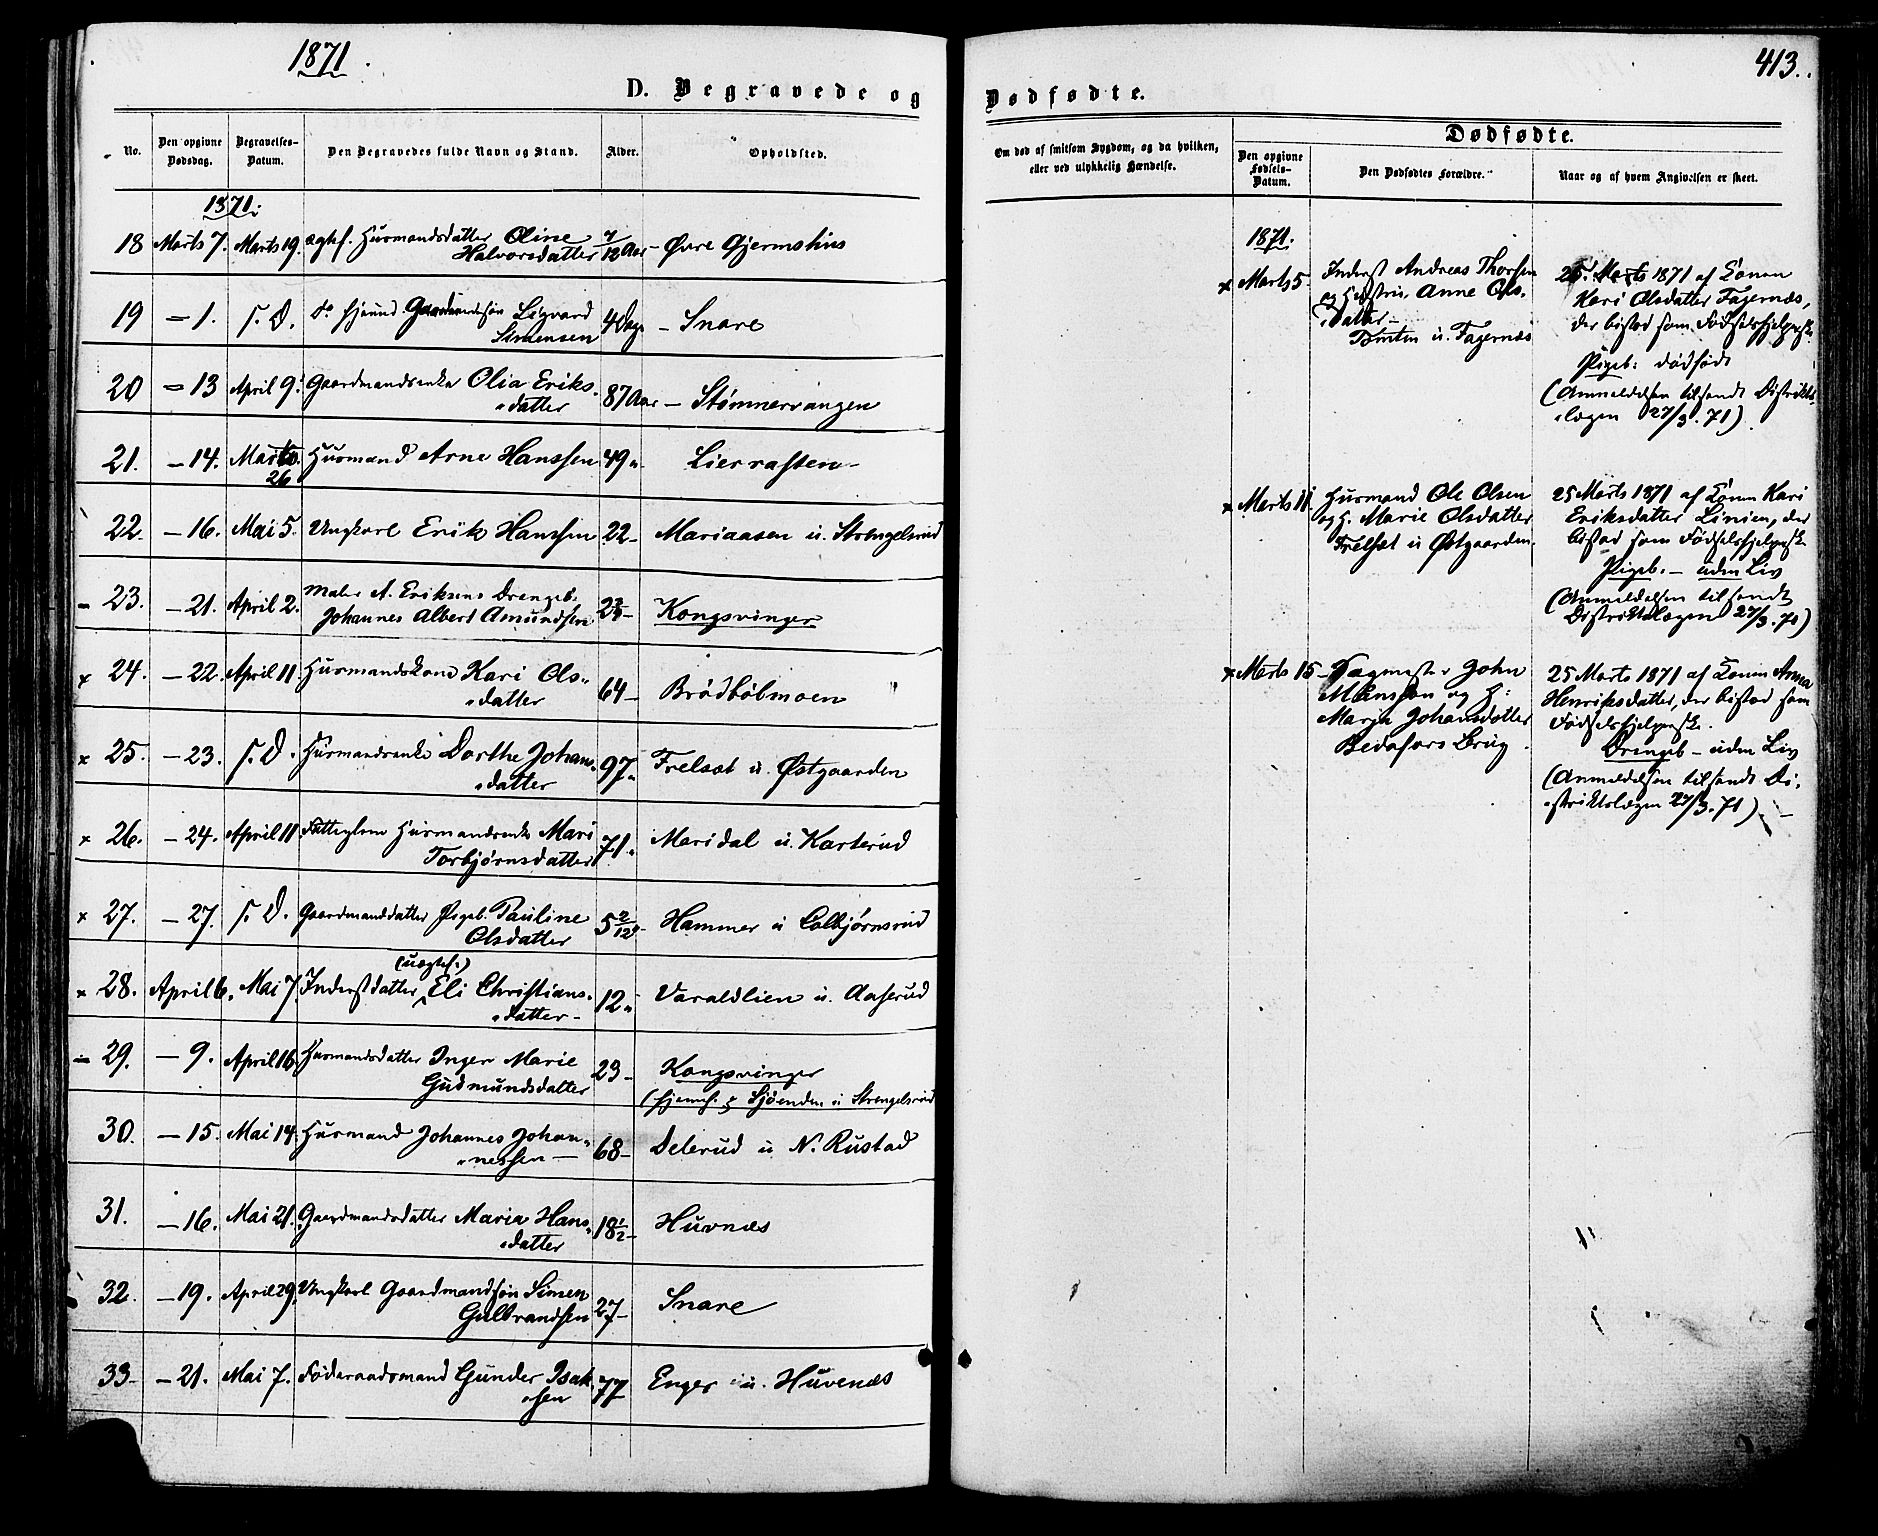 1871.
D. Begravede og
No.
Den opgivne Dødsdag.
Begravelses-Datum.
Den Begravedes fulde Navn og Stand.
Alder.
Opholdsted.
1871.
18 Marts 7. Marts 19. ægtef. Husmandsdatter Oline 7/12 Aar - Øvre Gjermshus
Halvorsdatter
19 - 1. s. D. do Gaardmandssøn Sigvard 4 Dage - Snare
Simensen
20 - 13 April 9. Gaardmandsenke Olia Eriks- 87 Aar - Stømnervangen
datter
21. - 14. Marts 26 Husmand Arne Hanssen 49 " Lierrasten
22. - 16. Mai 5. Ungkarl Erik Hanssen 22 - Mariaasen u. Strengelsrud
- 23. - 21. April 2. Maler A. Eriksens Drengeb. Kongsvinger
Johannes Albert Amundsen
x 24. - 22. April 11. Husmandskone Kari Ols- 64 - Brødbølmoen
datter
x 25. - 23. s. D. Husmandsenke Dorthe Johans- 97 " Frelset u. Østgaarden
datter
x 26. - 24. April 11 Fattiglem Husmandsenke Mari 71 " Maridal u. Karterud
Torbjørnsdatter
x 27. - 27. s. D. Gaardmanddatter Pigeb. Pauline 5 2/12 Hammer u Colbjørnsrud
Olsdatter
x 28. April 6. Mai 7 Inderstdatter (uægtef.) Eli Christians- 12 " Varaldlien u. Aaserud
datter -
- 29. - 9. April 16. Husmandsdatter Inger Marie 23 - Kongsvinger
Gudmundsdatter (hjemh. Sjøenden u Strengelsrud
30. - 15. Mai 14. Husmand Johannes Johan- 68 - Delerud u N. Rustad
nessen -
31. - 16. Mai 21. Gaardmandsdatter Maria Hans- 18 1/2 - Huvnæs
datter
32. - 19. April 29. Ungkarl Gaardmandssøn Simen 27 - Snare
Gulbrandsen
33 - 21. Mai 7. Føderaadsmand Gunder Isak- 77 Enger u. Huvenæs
sen
413.
Dødfødte.
Om død af smitsom Sygdom, og da hvilken,
eller ved ulykkelig Hændelse.
Dødfødte.
Den opgivne Fødsels-Datum.
Den Dødfødtes Forældre.
Naar og af hvem Angivelsen er skeet.
1871.
x Marts 5. Inderst Andreas Thorsen
og Hustru Anne Ols-
datter -
u. Fagernæs
25. Marts 1871 af Konen
Kari Olsdatter Fagernæs,
der bistod som Fødselshjelperske
Pigeb: dødfødt
(Anmeldelsen tilsendt Distrikts-
lægen 27/3. 71)
x Marts 11. Husmand Ole Olsen
og H. Marie Olsdatter
Frelset u Østgaarden.
25 Marts 1871 af Konen Kari
Eriksdatter Linien, der
bistod som Fødselshjelperske
Pigeb. - uden Liv
(Anmeldelsen tilsendt
Distriktslægen 27/3. 71)
x Marts 15 - John
Månsson og H:
Marja Johansdatter
Bedafors Brug.
25 Marts 1871 af Konen Anna
Henriksdatter, der bistod som
Fødselshjelperske.
Drengeb - uden Liv
(Anmeldelsen tilsendt Di-
striktslægen 27/3. 71) -